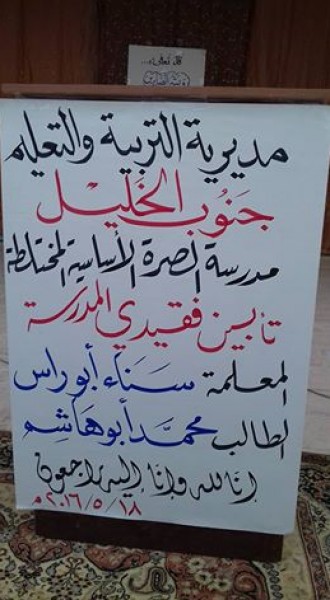 قال تعالى:...
وبشر الصابرين
مديرية التربية والتعليم
جنوب الخليل
مدرسة الصرة الأساسية المختلطة
تأبين فقيدي المدرسة
المعلمة سناء أبو راس
الطالب محمد أبو هاشم
إنا لله وإنا إليه راجعون
١٨/٥/٢٠١٦م